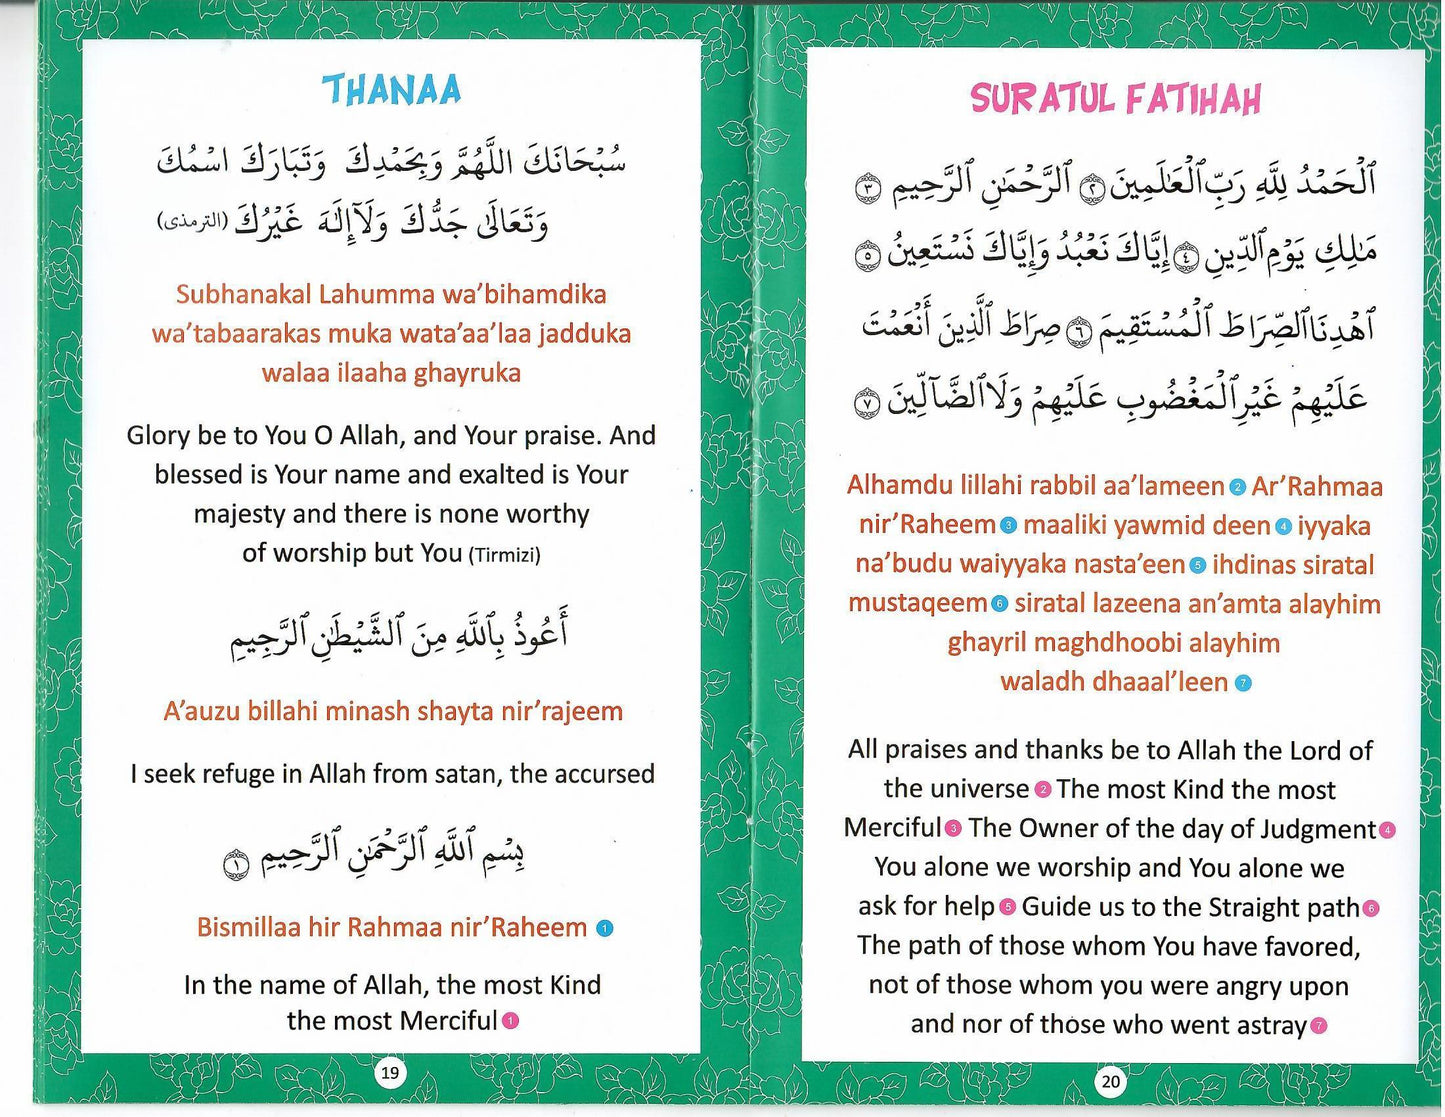 THANAA
سُبْحَانَكَ اللَّهُمَّ وَبِحَمْدِكَ وَتَبَارَكَ اسْمُكَ
وَتَعَالَىٰ جَدُّكَ وَلَآ إِلٰهَ غَيْرُكَ (الترمذى)
Subhanakal Lahumma wa’bihamdika
wa’tabaarakas muka wata’aa’laa jadduka
walaa ilaaha ghayruka
Glory be to You O Allah, and Your praise. And
blessed is Your name and exalted is Your
majesty and there is none worthy
of worship but You (Tirmizi)
أَعُوذُ بِٱللَّهِ مِنَ ٱلشَّيْطَٰنِ ٱلرَّجِيمِ
A’auzu billahi minash shayta nir’rajeem
I seek refuge in Allah from satan, the accursed
بِسْمِ ٱللَّهِ ٱلرَّحْمَٰنِ ٱلرَّحِيمِ ١
Bismillaa hir Rahmaa nir’Raheem 1
In the name of Allah, the most Kind
the most Merciful 1
19
SURATUL FATIHAH
ٱلْحَمْدُ لِلَّهِ رَبِّ ٱلْعَٰلَمِينَ ٢ ٱلرَّحْمَٰنِ ٱلرَّحِيمِ ٣
مَٰلِكِ يَوْمِ ٱلدِّينِ ٤ إِيَّاكَ نَعْبُدُ وَإِيَّاكَ نَسْتَعِينُ ٥
ٱهْدِنَا ٱلصِّرَاطَ ٱلْمُسْتَقِيمَ ٦ صِرَاطَ ٱلَّذِينَ أَنْعَمْتَ
عَلَيْهِمْ غَيْرِ ٱلْمَغْضُوبِ عَلَيْهِمْ وَلَا ٱلضَّآلِّينَ ٧
Alhamdu lillahi rabbil aa’lameen 2 Ar’Rahmaa
nir’Raheem 3 maaliki yawmid deen 4 iyyaka
na’budu waiyyaka nasta’een 5 ihdinas siratal
mustaqeem 6 siratal lazeena an’amta alayhim
ghayril maghdhoobi alayhim
waladh dhaaal’leen 7
All praises and thanks be to Allah the Lord of
the universe 2 The most Kind the most
Merciful 3 The Owner of the day of Judgment 4
You alone we worship and You alone we
ask for help 5 Guide us to the Straight path 6
The path of those whom You have favored,
not of those whom you were angry upon
and nor of those who went astray 7
20